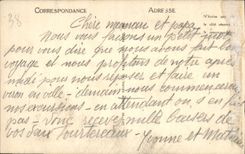 38
CORRESPONDANCE
ADRESSE
Chère maman et papa
Nous vous faisons un petit
pour vous dire que nous avons fait bon
voyage et nous profitons de notre après
midi pour nous reposer et faire un
tour en ville - demain nous commencerons
nos excursions - en attendant on s'en fait
pas - Donc recevez mille baisers de
vos deux tourtereaux - Yvonne et